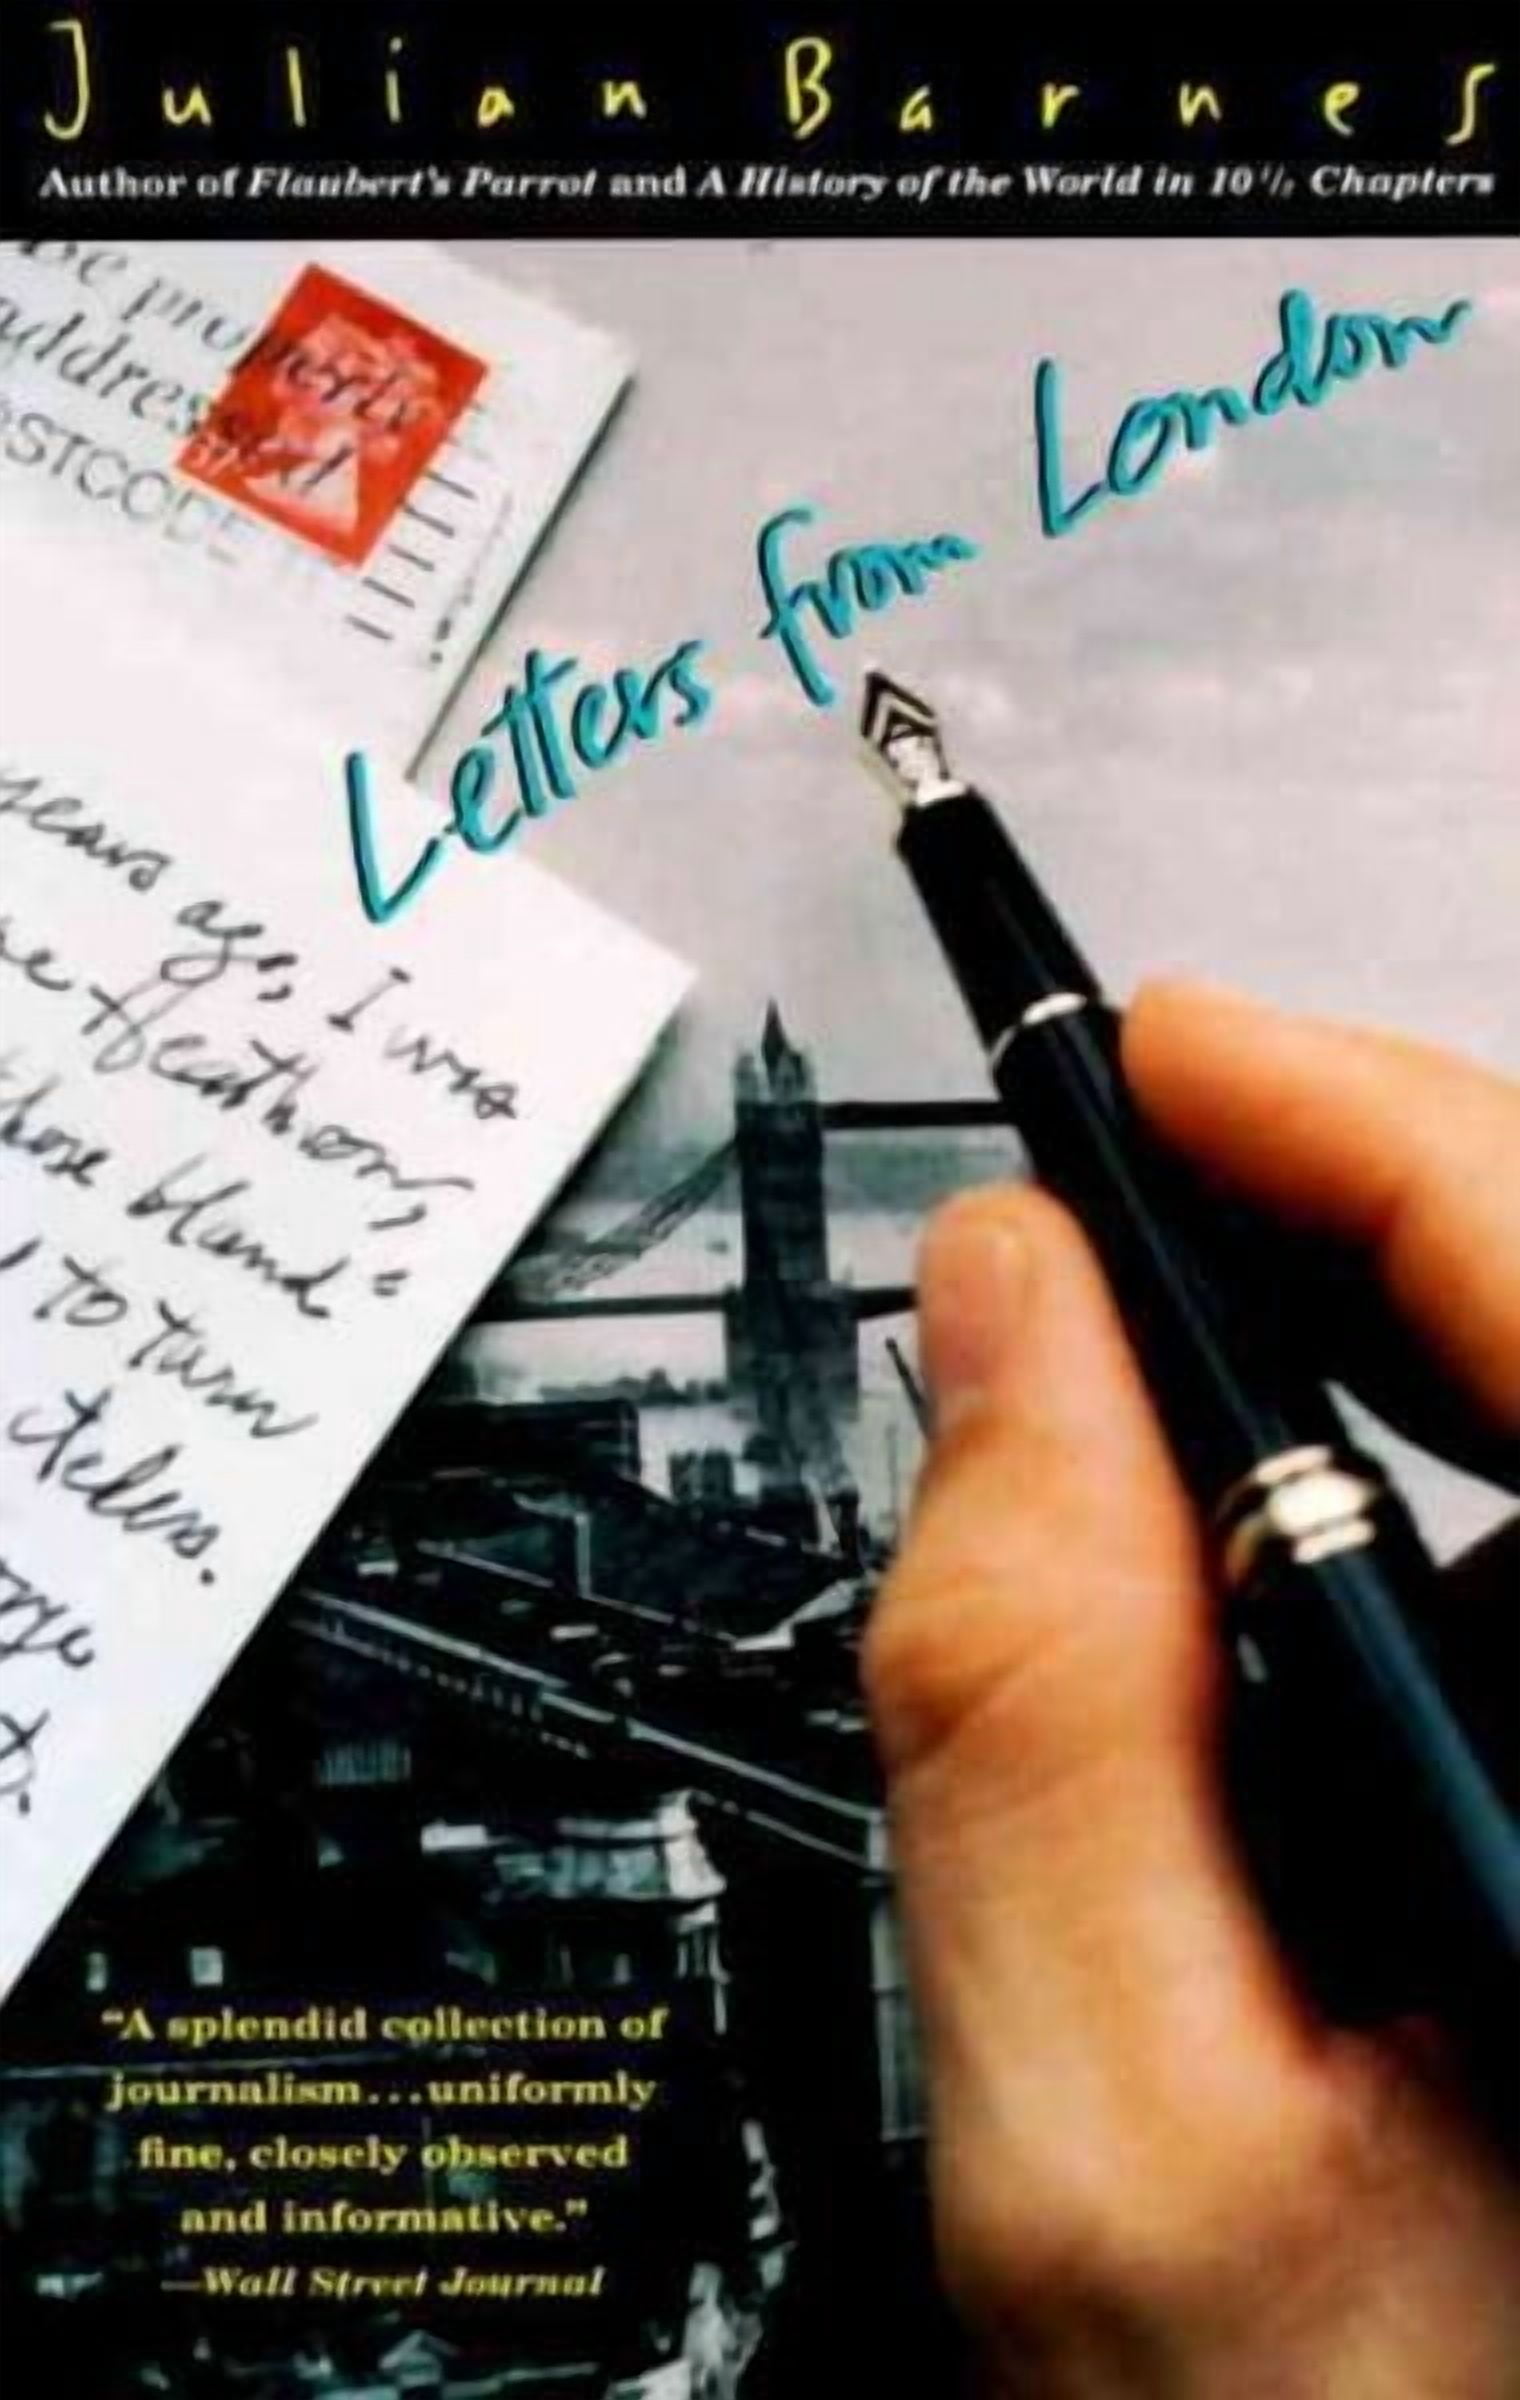 Julian Barnes
Author of Flaubert's Parrot and A History of the World in 10½ Chapters
be properly
addressed
POSTCODE
Letters from London
years ago, I was
Heathrow,
those bland
to turn
"A splendid collection of
journalism...uniformly
fine, closely observed
and informative."
—Wall Street Journal